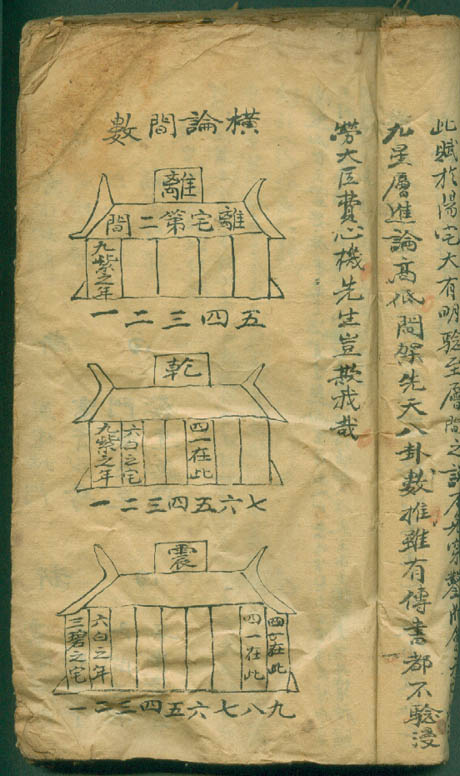 此賦於陽宅大有明驗至層間之說
九星層進論高低間架先天八卦數推雖有傳書都不驗漫
勞大匠費心機先生豈欺我哉
橫論間數
離
離宅第二間
九紫之年
一二三四五
乾
四一在此
六白之宅
九紫之年
一二三四五六七
震
在此
四一在此
六白之年
三碧之宅
一二三四五六七八九